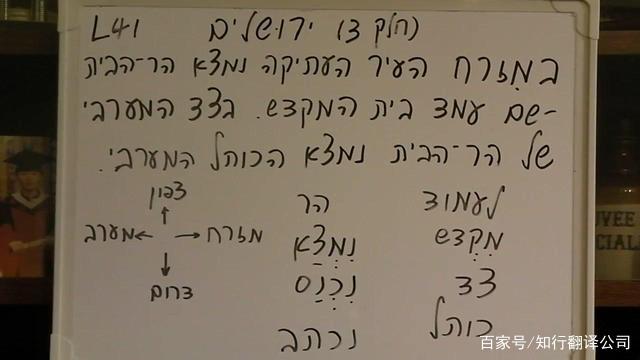 L41 ירושלים (חלק 3)
במִזרח העיר העתיקה נמצא הר-הבית
-שם עמד בית המקדש. בצד המערבי
של הר-הבית נמצא הכותל המערבי.
לעמוד
מִקְדש
צד
כותל
הר
נִמְצָא
נִכְנָס
נכתב
צפון
↑
מזרח ← → מערב
↓
דרום
UVEE
CIAL
百家号/知行翻译公司